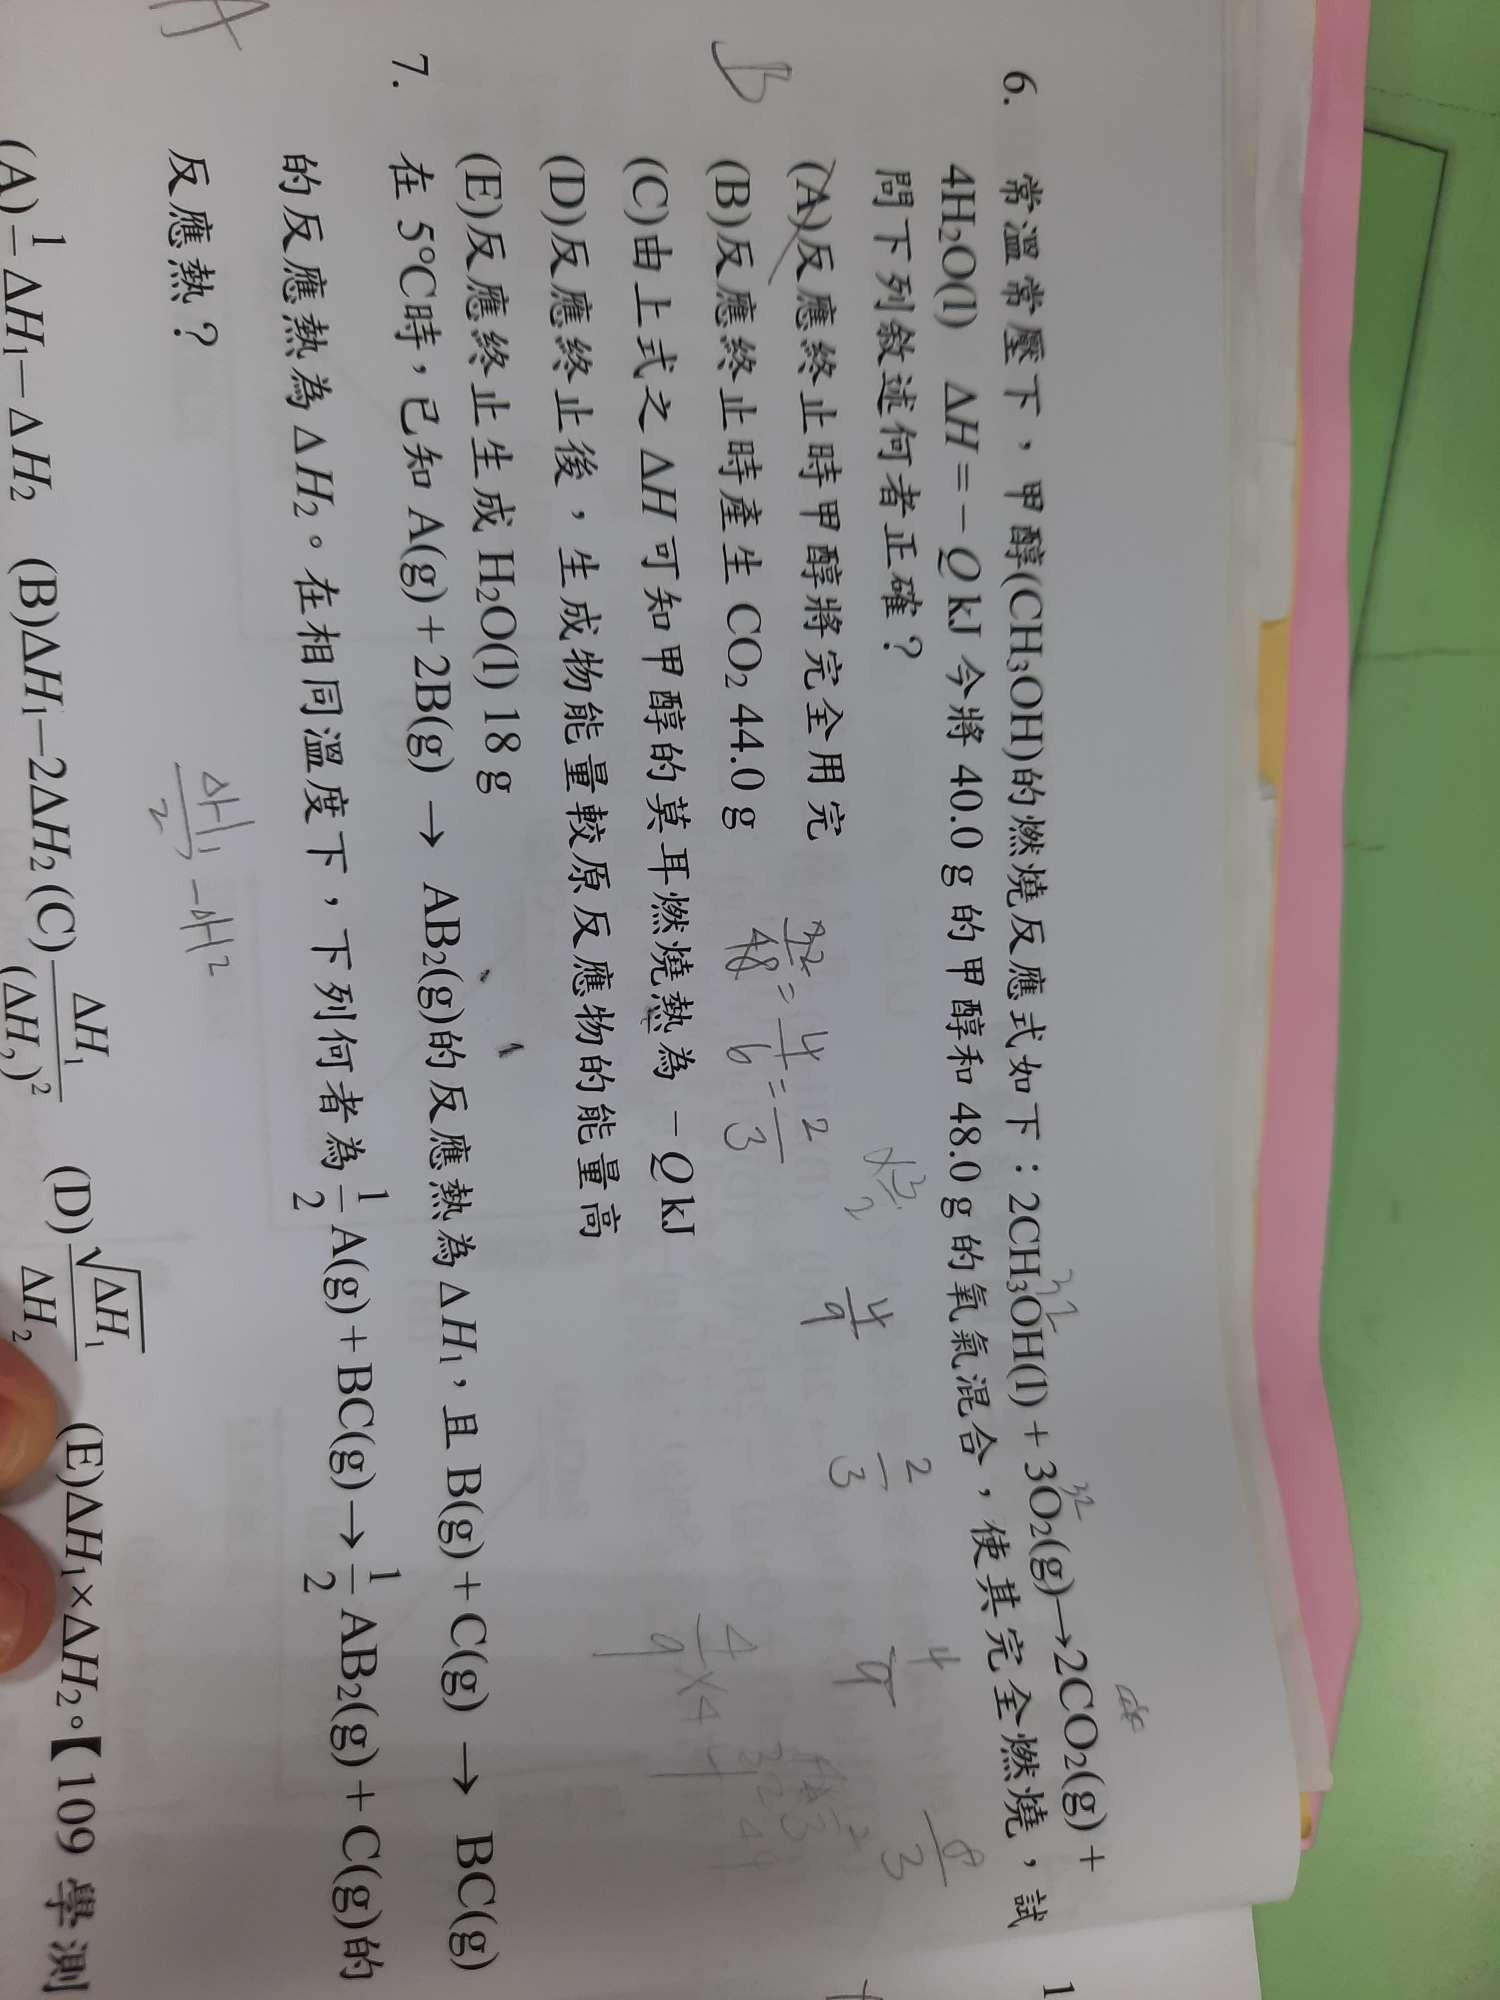 6. 常溫常壓下，甲醇(CH₃OH)的燃燒反應式如下：2CH₃OH(l) + 3O₂(g)→2CO₂(g) +
4H₂O(l) ΔH = − Q kJ 今將 40.0 g 的甲醇和 48.0 g 的氧氣混合，使其完全燃燒，試
問下列敘述何者正確？
(A)反應終止時甲醇將完全用完
B
(B)反應終止時產生 CO₂ 44.0 g
(C)由上式之 ΔH 可知甲醇的莫耳燃燒熱為 − Q kJ
(D)反應終止後，生成物能量較原反應物的能量高
(E)反應終止生成 H₂O(l) 18 g
7. 在 5°C時，已知 A(g) + 2B(g) → AB₂(g)的反應熱為 ΔH₁，且 B(g) + C(g) → BC(g)
的反應熱為 ΔH₂。在相同溫度下，下列何者為 1/2 A(g) + BC(g)→ 1/2 AB₂(g) + C(g)的
反應熱？
ΔH₁/2 − ΔH₂
A
(A) 1/2 ΔH₁− ΔH₂ (B)ΔH₁−2ΔH₂ (C) ΔH₁/(ΔH₂)² (D) √ΔH₁/ΔH₂ (E)ΔH₁×ΔH₂。【109 學測